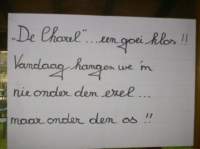 „De Charel"...een goei klos !!
Vandaag hangen we 'm
nie onder den ezel...
maar onder den os !!